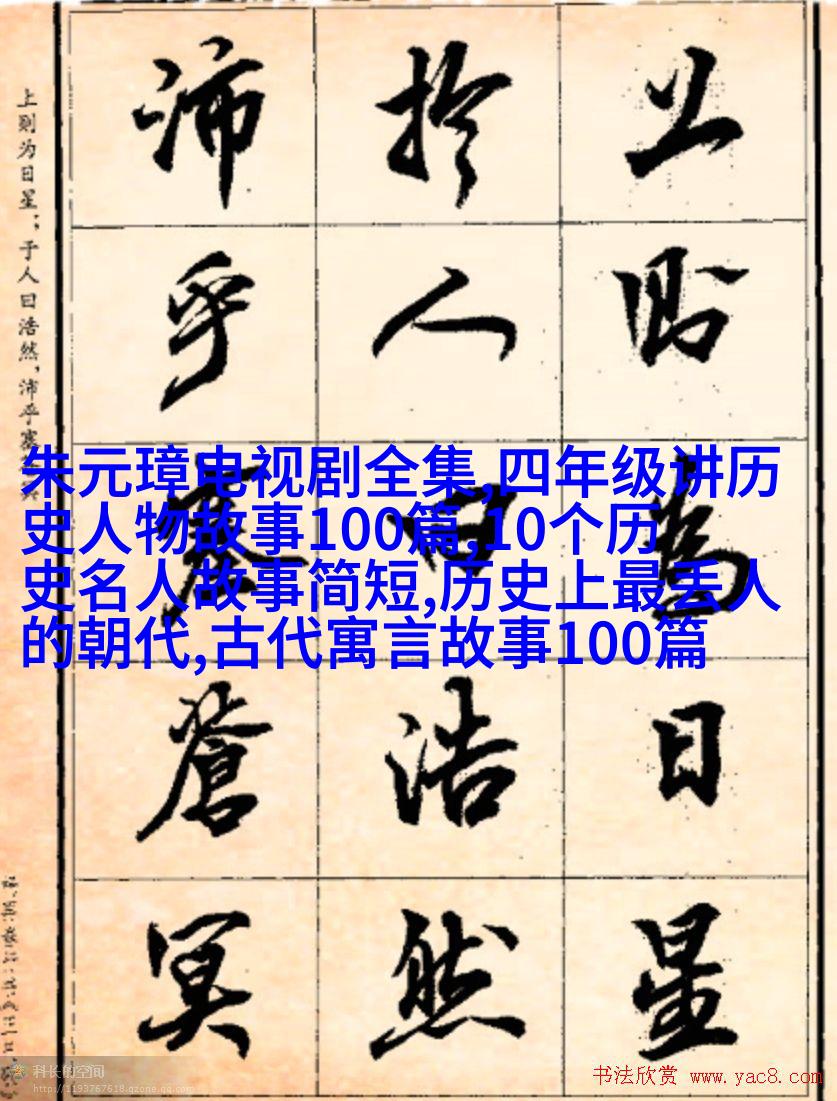 上则为日星；于人曰浩然，沛乎塞
上則為日星
於人曰浩然
沛乎塞蒼冥
朱元璋电视剧全集,四年级讲历
史人物故事100篇,10个历
史名人故事简短,历史上最丢人
的朝代,古代寓言故事100篇
科长的空间
http://1193767618.qzone.qq.com
书法欣赏 www.yac8.com